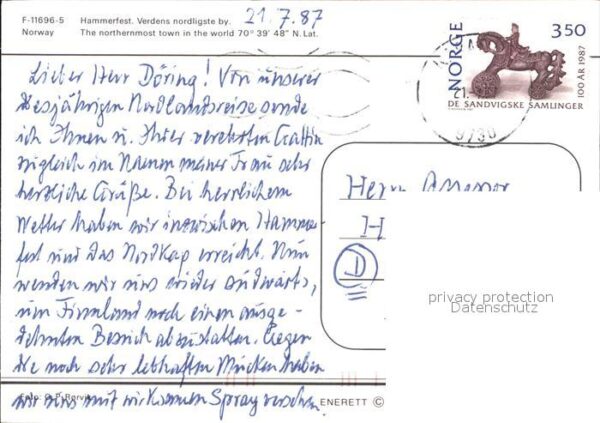 F-11696-5 Hammerfest. Verdens nordligste by. 21.7.87
Norway The northernmost town in the world 70° 39' 48" N. Lat.
NORGE
3 50
100 ÅR 1987
DE SANDVIGSKE SAMLINGER
21.
9730
Lieber Herr Döring! Von unserer
diesjährigen Nordlandreise sende
ich Ihnen u. Ihrer verehrten Gattin
zugleich im Namen meiner Frau sehr
herzliche Grüße. Bei herrlichem
Wetter haben wir inzwischen Hammer-
fest und das Nordkap erreicht. Nun
wenden wir uns wieder südwärts,
um Finnland noch einen ausge-
dehnten Besuch abzustatten. Gegen
die noch sehr lebhaften Mücken haben
wir uns mit wirksamen Spray versehen.
Herrn
H
D
privacy protection
Datenschutz
Foto:
ENERETT ©